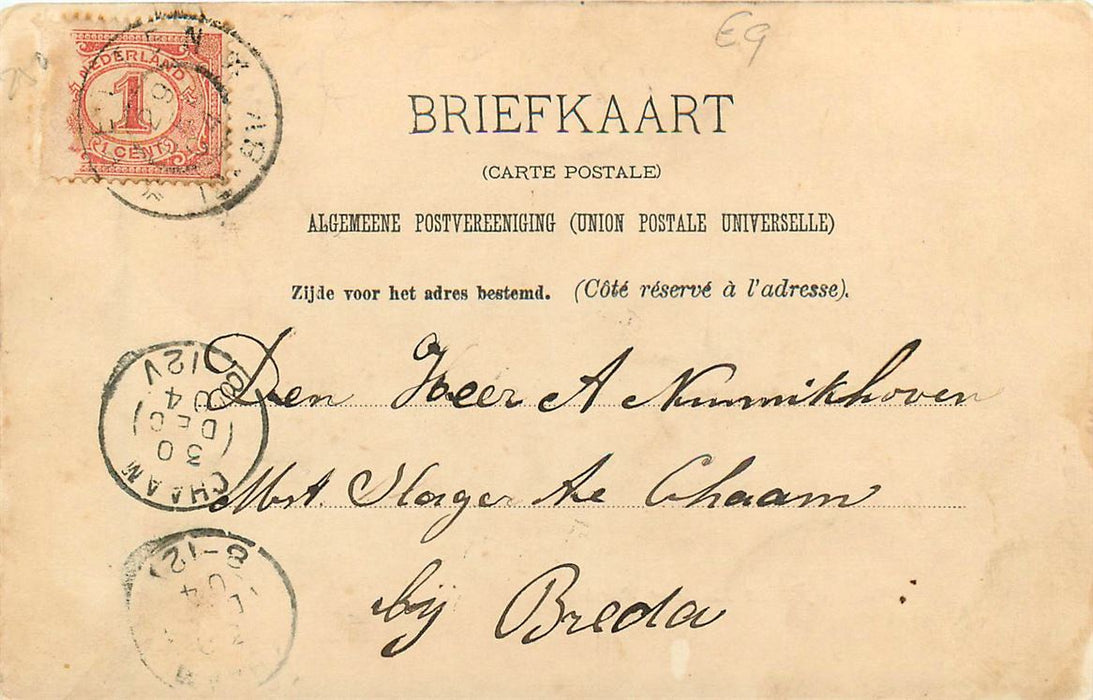 E9
NEDERLAND
1
1 CENT
BRIEFKAART
(CARTE POSTALE)
ALGEMEENE POSTVEREENIGING (UNION POSTALE UNIVERSELLE)
Zijde voor het adres bestemd. (Côté réservé à l'adresse).
Den Heer A Nunnikhoven
Mst. Slager te Chaam
bij Breda
CHAAM
30
(DEC)
04
8-12V
8-12V
04